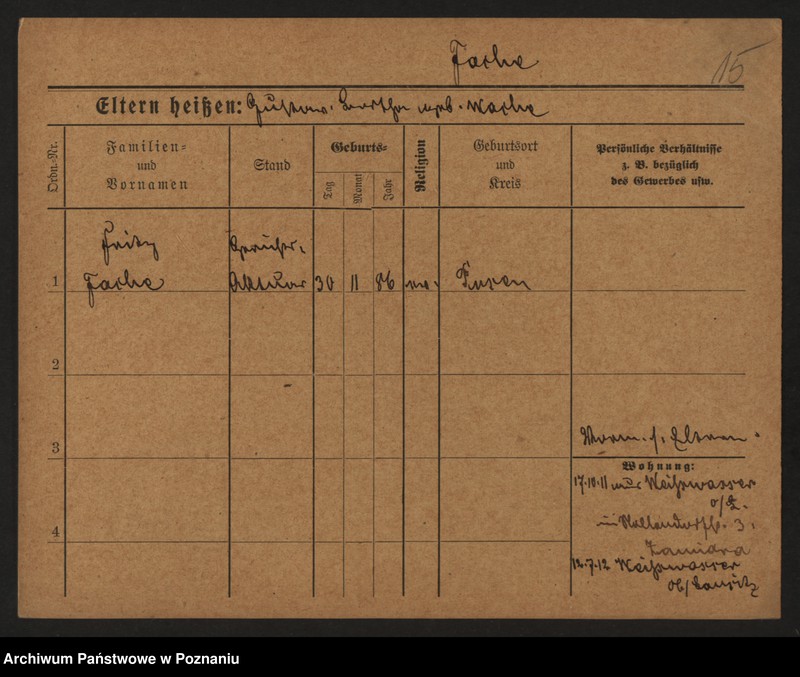 Fache
15
Eltern heißen: Gustav. Bertha geb. Wache
Ordn.-Nr.
Familien-
und
Vornamen
Stand
Geburts-
Tag
Monat
Jahr
Religion
Geburtsort
und
Kreis
Persönliche Verhältnisse
z. B. bezüglich
des Gewerbes usw.
Fritz
Gerichts-
1
Fache
Aktuar
30
11
86
ev.
Posen
2
3
4
s. Eltern
Wohnung:
17.10.11 Weißwasser
o/L.
3.
12.7.12 Weißwasser
ob/Lausitz
Archiwum Państwowe w Poznaniu